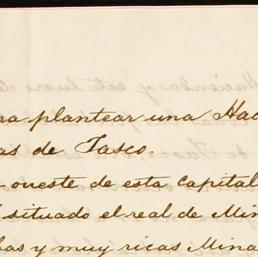 ra plantear una Hac
as de Tasco.
oeste de esta capital
situado el real de Min
bas y muy ricas Mina